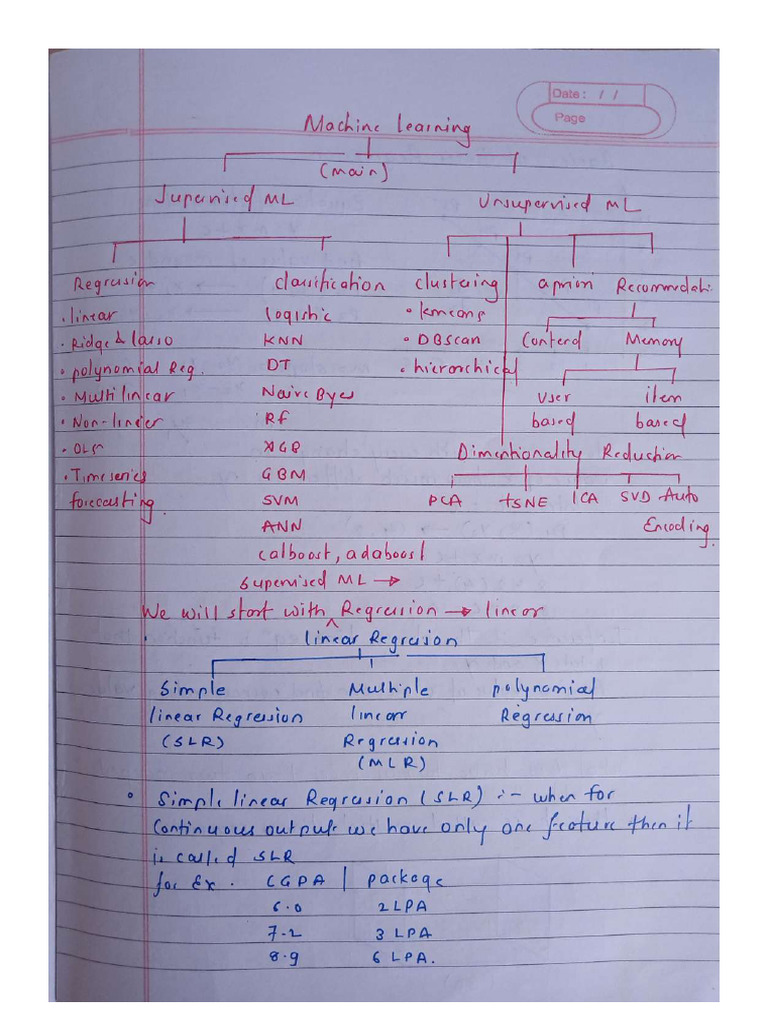 Date : / /
Page
Machine learning
(main)
Supervised ML Unsupervised ML
Regression classification clustering apriori Recommdati.
• linear logistic • kmeans Contend Memory
• Ridge & lasso KNN • DBscan
• polynomial Reg. DT • hierarchical user item
• Multi linear Naive Byes based based
• Non-linear Rf Dimentionality Reduction
• OLS XGB
• Time series GBM PCA tSNE ICA SVD Auto
forecasting SVM Encoding.
ANN
catboost, adaboost
Supervised ML →
We will start with ^ Regression → linear
linear Regression
Simple Multiple polynomial
linear Regression linear Regression
(SLR) Regression
(MLR)
• Simple linear Regression (SLR) :- when for
continuous output we have only one feature then it
is called SLR
for Ex. CGPA | package
6.0 2 LPA
7.2 3 LPA
8.9 6 LPA.